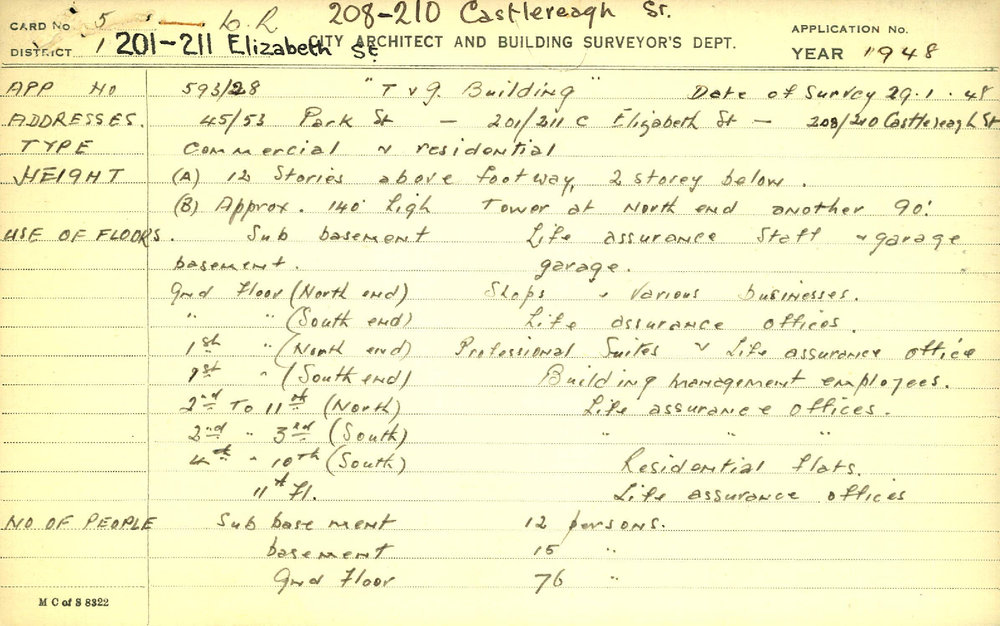 208-210 Castlereagh St.
CARD No 5 L.R
201-211 Elizabeth St CITY ARCHITECT AND BUILDING SURVEYOR'S DEPT. APPLICATION No.
DISTRICT 1 YEAR 1948
APP NO 593/28 "T v g. Building" Date of Survey 29.1.48
ADDRESSES. 45/53 Park St - 201/211 c Elizabeth St - 208/210 Castlereagh St
TYPE Commercial & residential
HEIGHT (A) 12 Stories above footway, 2 storey below.
(B) Approx. 140' high Tower at North end another 90'.
USE OF FLOORS. Sub basement Life assurance Staff & garage
basement. garage.
Gnd Floor (North end) Shops & Various businesses.
" " (South end) Life assurance offices.
1st " (North end) Professional Suites & Life assurance office
1st " (South end) Building management employees.
2nd To 11th (North) Life assurance offices.
2nd " 3rd (South) " " "
4th " 10th (South) Residential flats.
11th Fl. Life assurance offices
NO OF PEOPLE Sub basement 12 persons.
basement 15 "
Gnd Floor 76 "
M C of S 8322